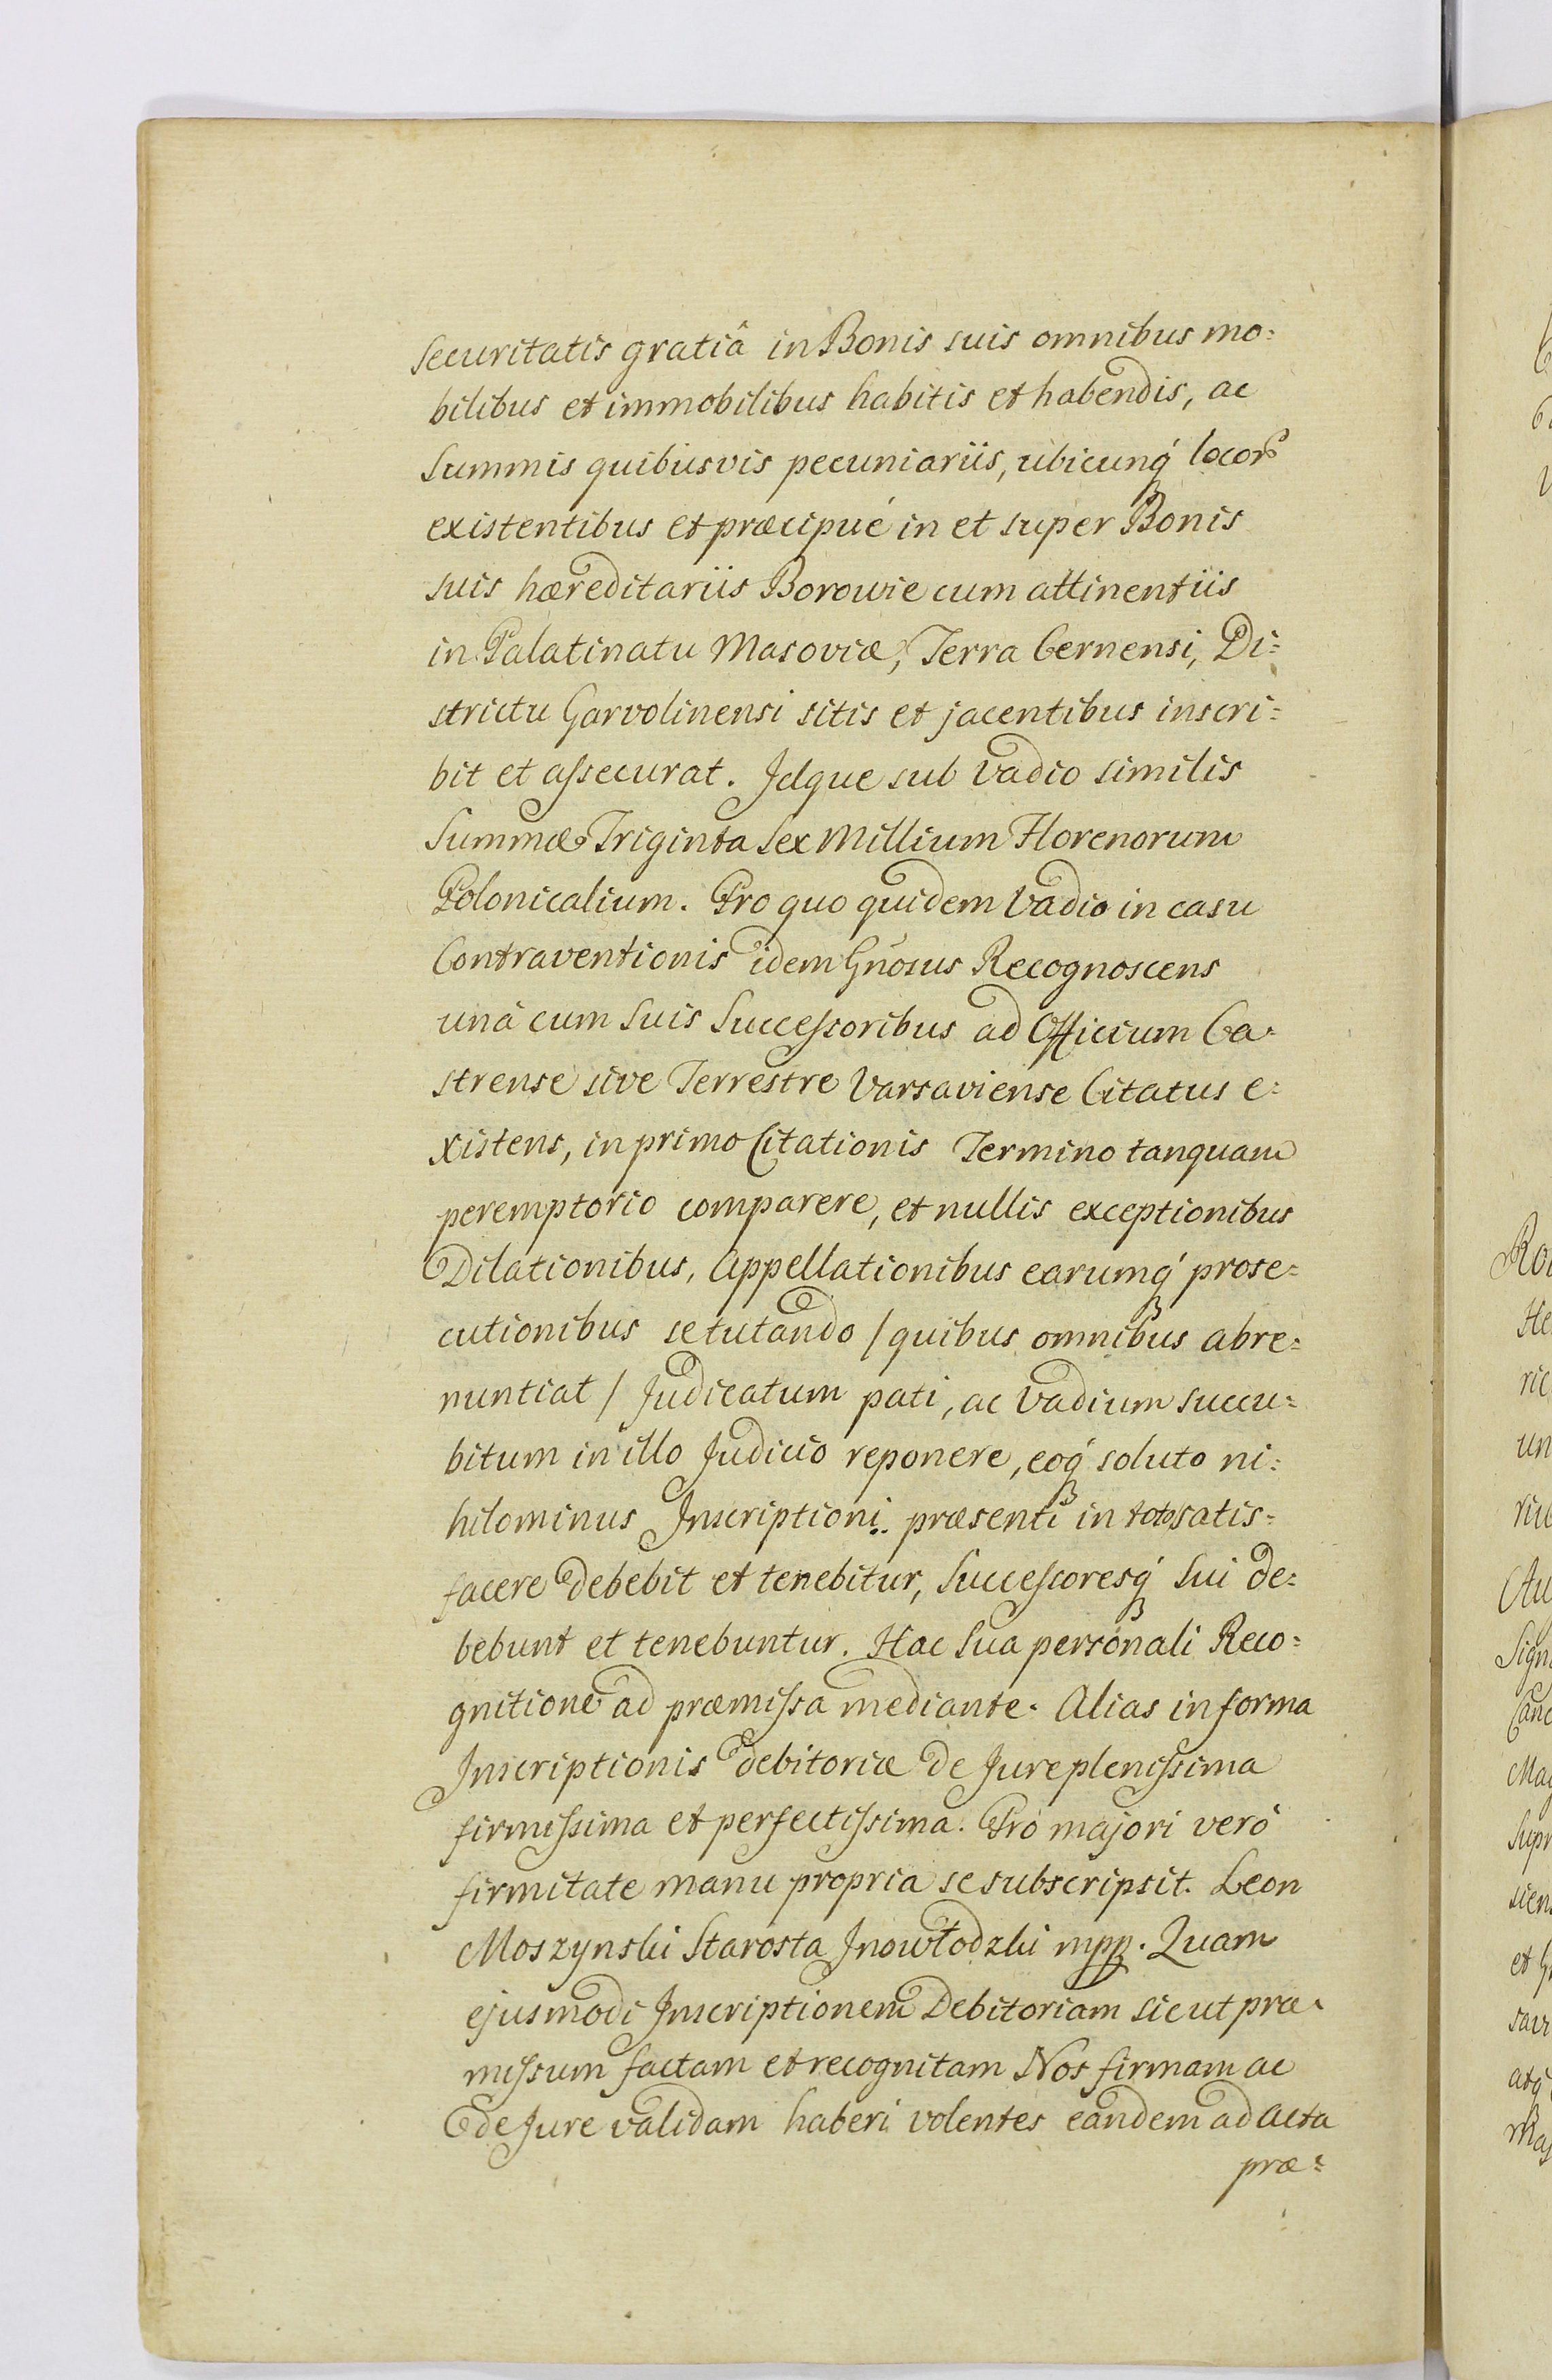 securitatis gratiâ in Bonis suis omnibus mo=
bilibus et immobilibus habitis et habendis, ac
Summis quibusvis pecuniariis, ubicunq́ locorꝫ
existentibus et præcipué in et super Bonis
suis hæreditariis Borowie cum attinentiis
in Palatinatu Masoviæ, Terra Cernensi, Di=
strictu Garvolinensi sitis et jacentibus inscri=
bit et assecurat. Idque sub Vadio similis
Summæ Triginta Sex Millium Florenorum
Polonicalium. Pro quo quidem Vadio in casu
Contraventionis idem Gñosus Recognoscens
unâ cum Suis Successoribus ad Officium Ca=
strense sive Terrestre Varsaviense Citatus e=
xistens, in primo Citationis Termino tanquam
peremptorio comparere, et nullis exceptionibus
Dilationibus, Appellationibus earumq́ prose=
cutionibus se tutando / quibus omnibus abre=
nuntiat / Judicatum pati, ac Vadium succu=
bitum in illo Judicio reponere, eoq́ soluto ni=
hilominus Inscriptioni præsenti in toto satis=
facere debebit et tenebitur, Successoresq́ Sui de=
bebunt et tenebuntur. Hac Sua personali Reco=
gnitione ad præmissa mediante. Alias in forma
Inscriptionis debitoriæ de Jure plenissima
firmissima et perfectissima. Pro majori verò
firmitate manu propria se subscripsit. Leon
Moszynski Starosta Inowłodzki mpp. Quam
ejusmodi Inscriptionem Debitoriam sicut præ=
missum factam et recognitam Nos firmam ac
de Jure validam haberi volentes eandem ad Acta
præ=